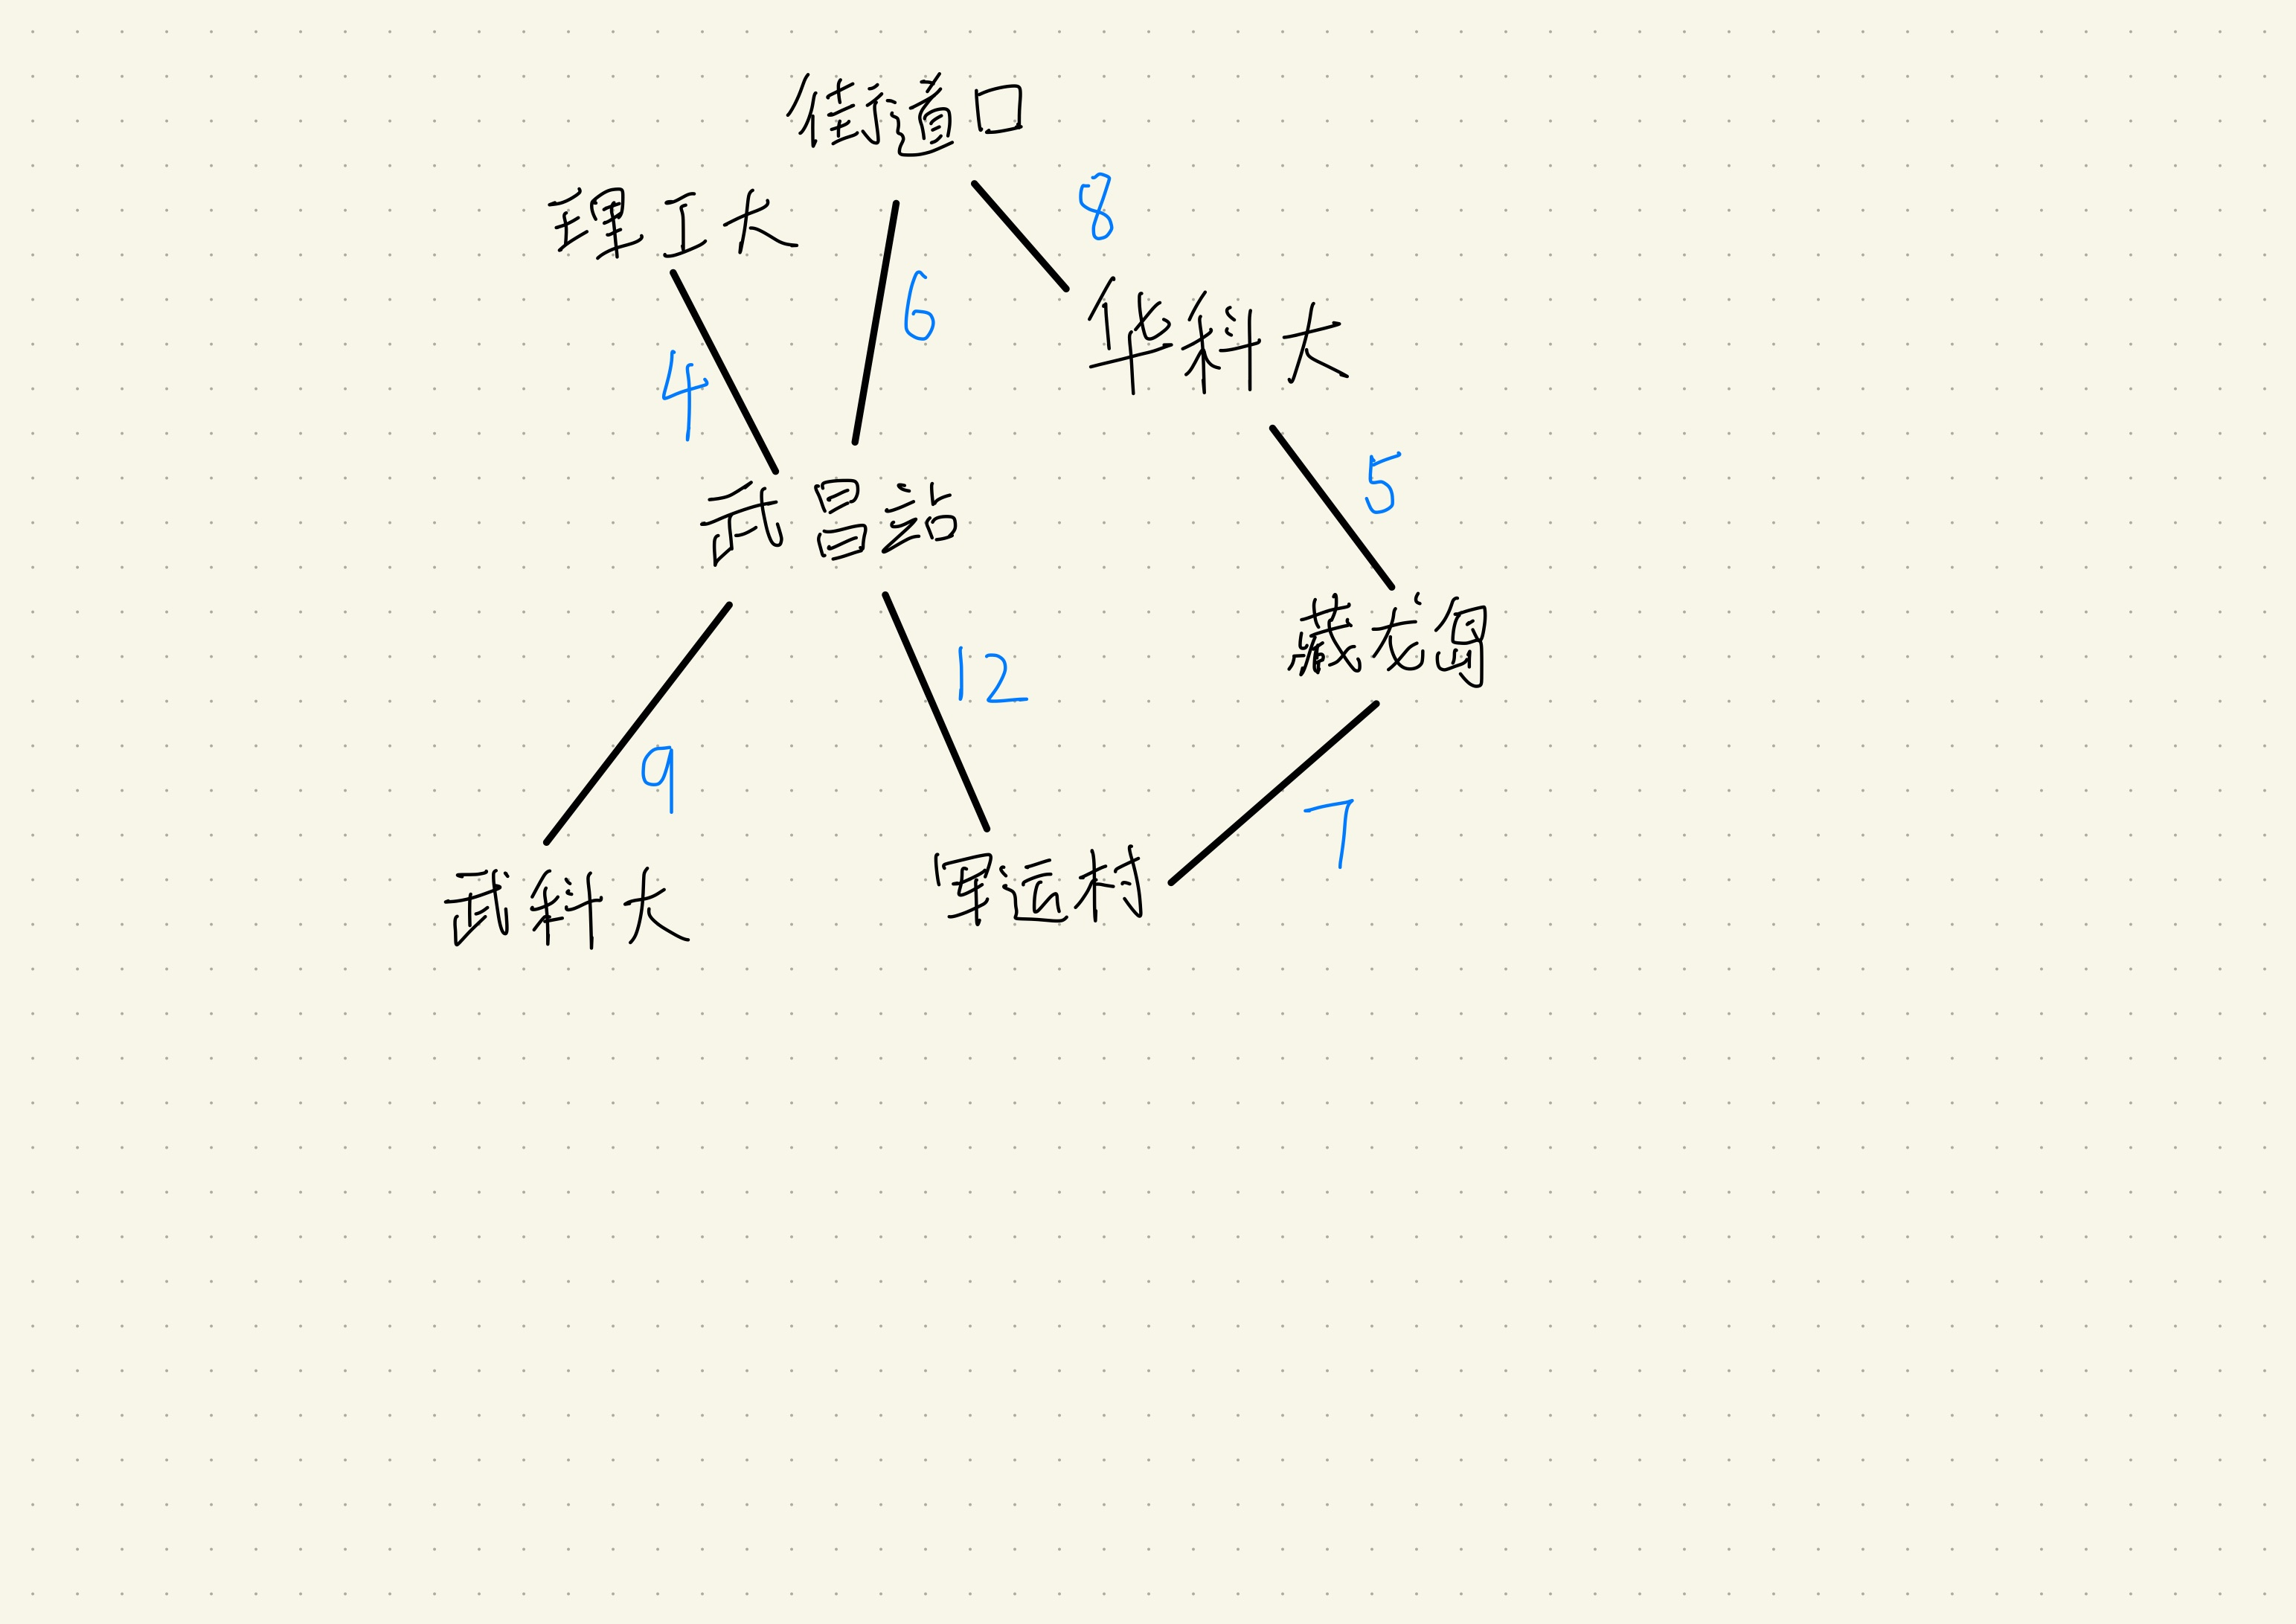 街道口
理工大
8
6
华科大
4
5
武昌站
藏龙岛
12
9
7
武科大
军运村